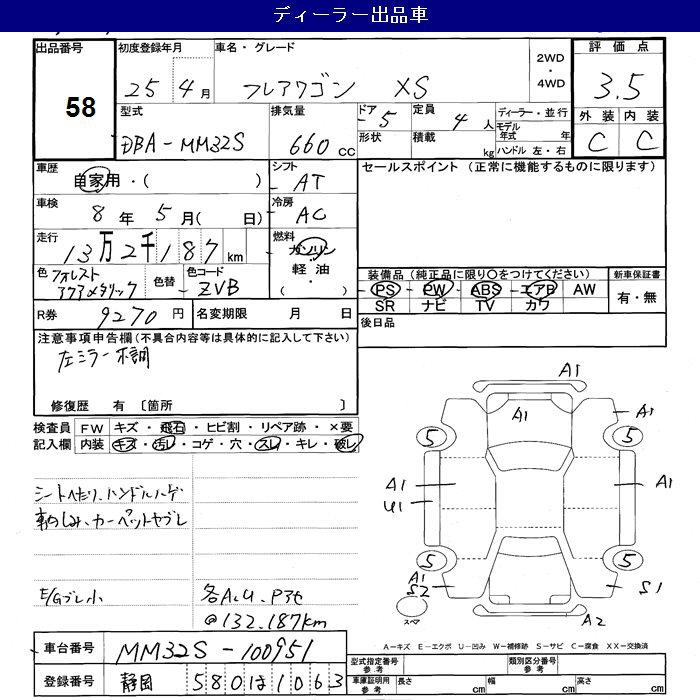 ディーラー出品車
出品番号 初度登録年月 車名・グレード 2WD・4WD 評価点
58 25年 4月 フレアワゴン XS 3.5
型式 排気量 ドア 定員 ディーラー・並行 外装 内装
DBA-MM32S 660cc 5 4人 モデル年式 年 C C
形状 積載 kg ハンドル 左・右
車歴 シフト セールスポイント (正常に機能するものに限ります)
自家用・( ) AT
車検 冷房
8年 5月( 日) AC
走行 燃料
13万2千187km ガソリン・軽油・( )
色 色替 色コード 装備品 (純正品に限り○をつけてください) 新車保証書
フォレストアクアメタリック ZVB PS・PW・ABS・エアB・AW 有・無
SR ナビ TV カワ
R券 9270円 名変期限 月 日 後日品
注意事項申告欄(不具合内容等は具体的に記入して下さい)
左ミラー不調
修復歴 有 〔箇所 〕
検査員 FW キズ・飛石・ヒビ割・リペア跡・×要
記入欄 内装 キズ・汚レ・コゲ・穴・スレ・キレ・破レ
シートヘたり、ハンドルハゲ
車内しみ、カーペットヤブレ
E/Gブレ小
各A.U.Pスセ
@132.187km
A1
A1 A1
5 5
A1 A1
U1
5 5
A1
S2 S1
スペア A2
A-キズ E-エクボ U-凹み W-補修跡 S-サビ C-腐食 XX-交換済
車台番号 MM32S-100951 型式指定番号 参考 類別区分番号 参考
登録番号 静岡 580は1063 車庫証明用 参考 長さ cm 幅 cm 高さ cm